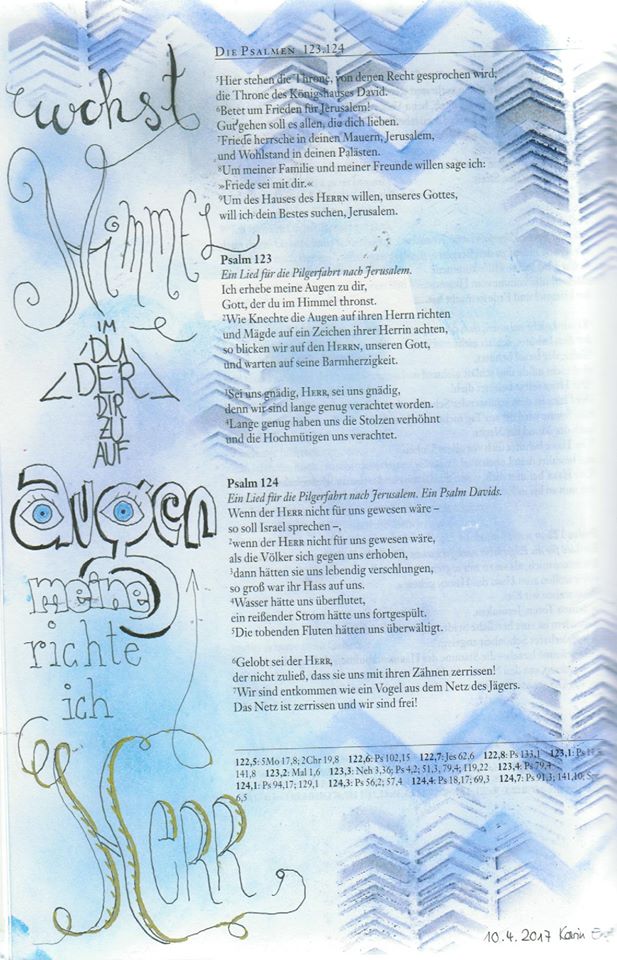 DIE PSALMEN 123.124
⁵Hier stehen die Throne, von denen Recht gesprochen wird,
die Throne des Königshauses David.
⁶Betet um Frieden für Jerusalem!
Gut gehen soll es allen, die dich lieben.
⁷Friede herrsche in deinen Mauern, Jerusalem,
und Wohlstand in deinen Palästen.
⁸Um meiner Familie und meiner Freunde willen sage ich:
»Friede sei mit dir.«
⁹Um des Hauses des HERRN willen, unseres Gottes,
will ich dein Bestes suchen, Jerusalem.
Psalm 123
Ein Lied für die Pilgerfahrt nach Jerusalem.
Ich erhebe meine Augen zu dir,
Gott, der du im Himmel thronst.
²Wie Knechte die Augen auf ihren Herrn richten
und Mägde auf ein Zeichen ihrer Herrin achten,
so blicken wir auf den HERRN, unseren Gott,
und warten auf seine Barmherzigkeit.
³Sei uns gnädig, HERR, sei uns gnädig,
denn wir sind lange genug verachtet worden.
⁴Lange genug haben uns die Stolzen verhöhnt
und die Hochmütigen uns verachtet.
Psalm 124
Ein Lied für die Pilgerfahrt nach Jerusalem. Ein Psalm Davids.
Wenn der HERR nicht für uns gewesen wäre –
so soll Israel sprechen –,
²wenn der HERR nicht für uns gewesen wäre,
als die Völker sich gegen uns erhoben,
³dann hätten sie uns lebendig verschlungen,
so groß war ihr Hass auf uns.
⁴Wasser hätte uns überflutet,
ein reißender Strom hätte uns fortgespült.
⁵Die tobenden Fluten hätten uns überwältigt.
⁶Gelobt sei der HERR,
der nicht zuließ, dass sie uns mit ihren Zähnen zerrissen!
⁷Wir sind entkommen wie ein Vogel aus dem Netz des Jägers.
Das Netz ist zerrissen und wir sind frei!
122,5: 5Mo 17,8; 2Chr 19,8 122,6: Ps 102,15 122,7: Jes 62,6 122,8: Ps 133,1 123,1: Ps
141,8 123,2: Mal 1,6 123,3: Neh 3,36; Ps 4,2; 51,3, 79,4; 119,22 123,4: Ps 79,4
124,1: Ps 94,17; 129,1 124,3: Ps 56,2; 57,4 124,4: Ps 18,17; 69,3 124,7: Ps 91,3; 141,10;
6,5
HERR
ich
richte
meine
augen
AUF
ZU
DIR
DER
DU
IM
HIMMEL
wohst
10.4.2017 Karin